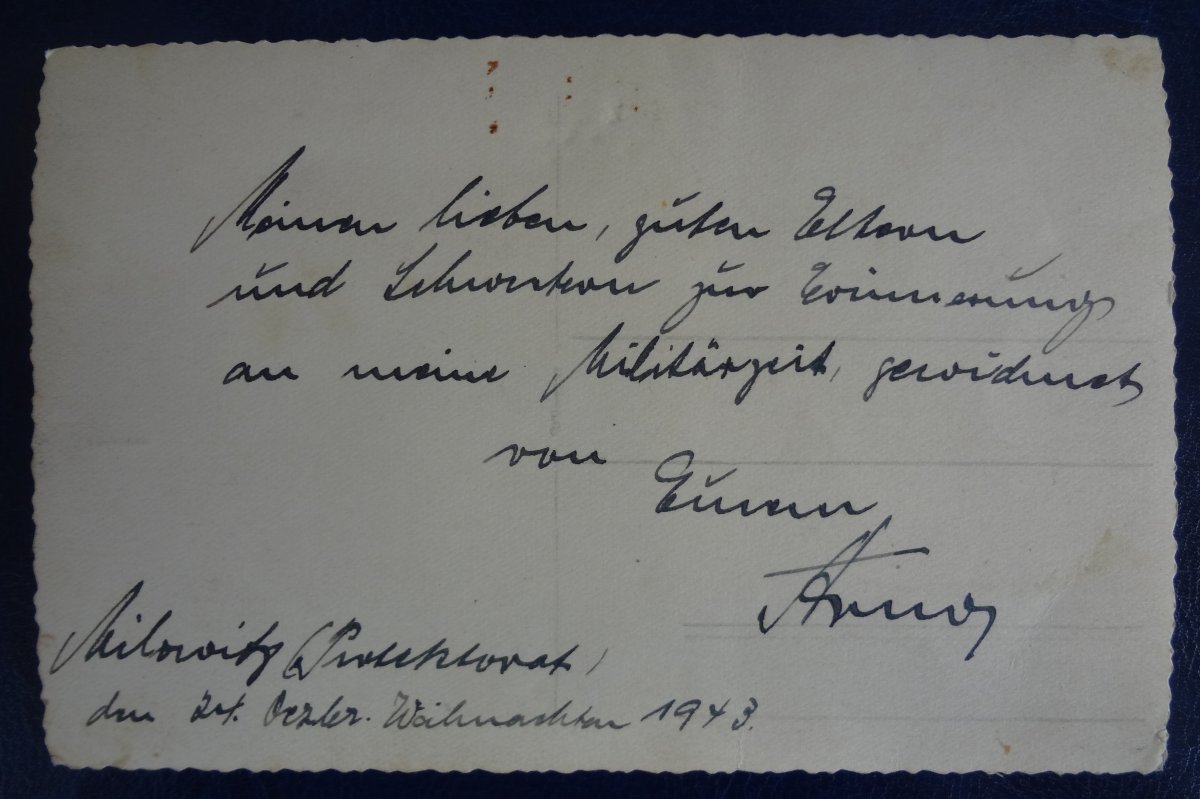 Meinen lieben, guten Eltern
und Schwestern zur Erinnerung
an meine Militärzeit, gewidmet
von
Euren
Milowitz (Protektorat)
den 24. Dezbr. Weihnachten 1943.